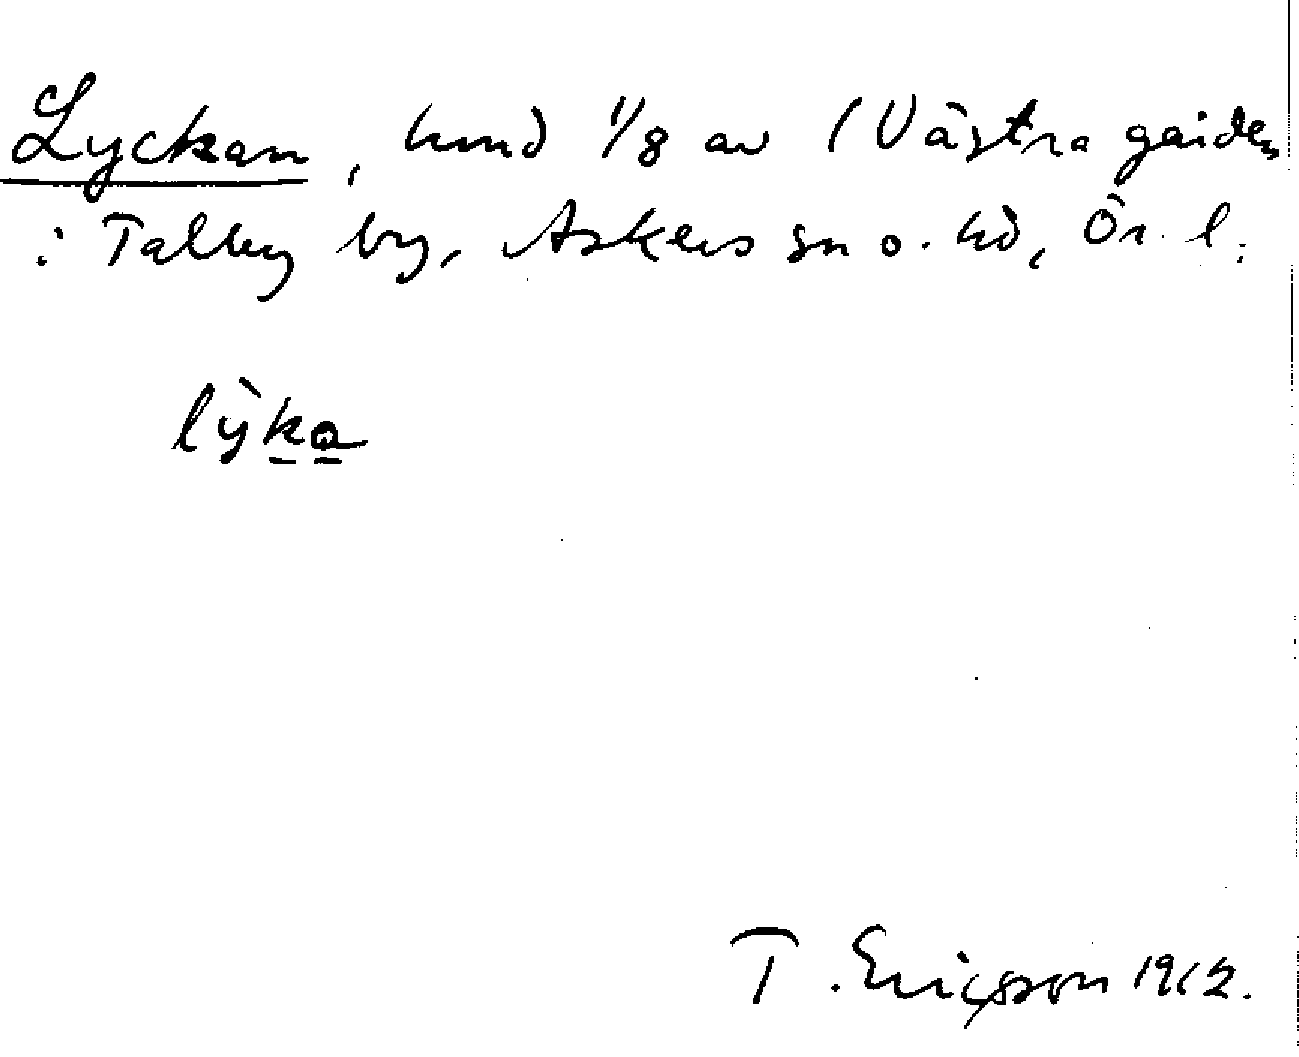 Lyckan, lund 1/8 av (Västra gården
i Talby by, Askers sn o. hd, Ör. l.
lỳka
T. Ericsson 1912.